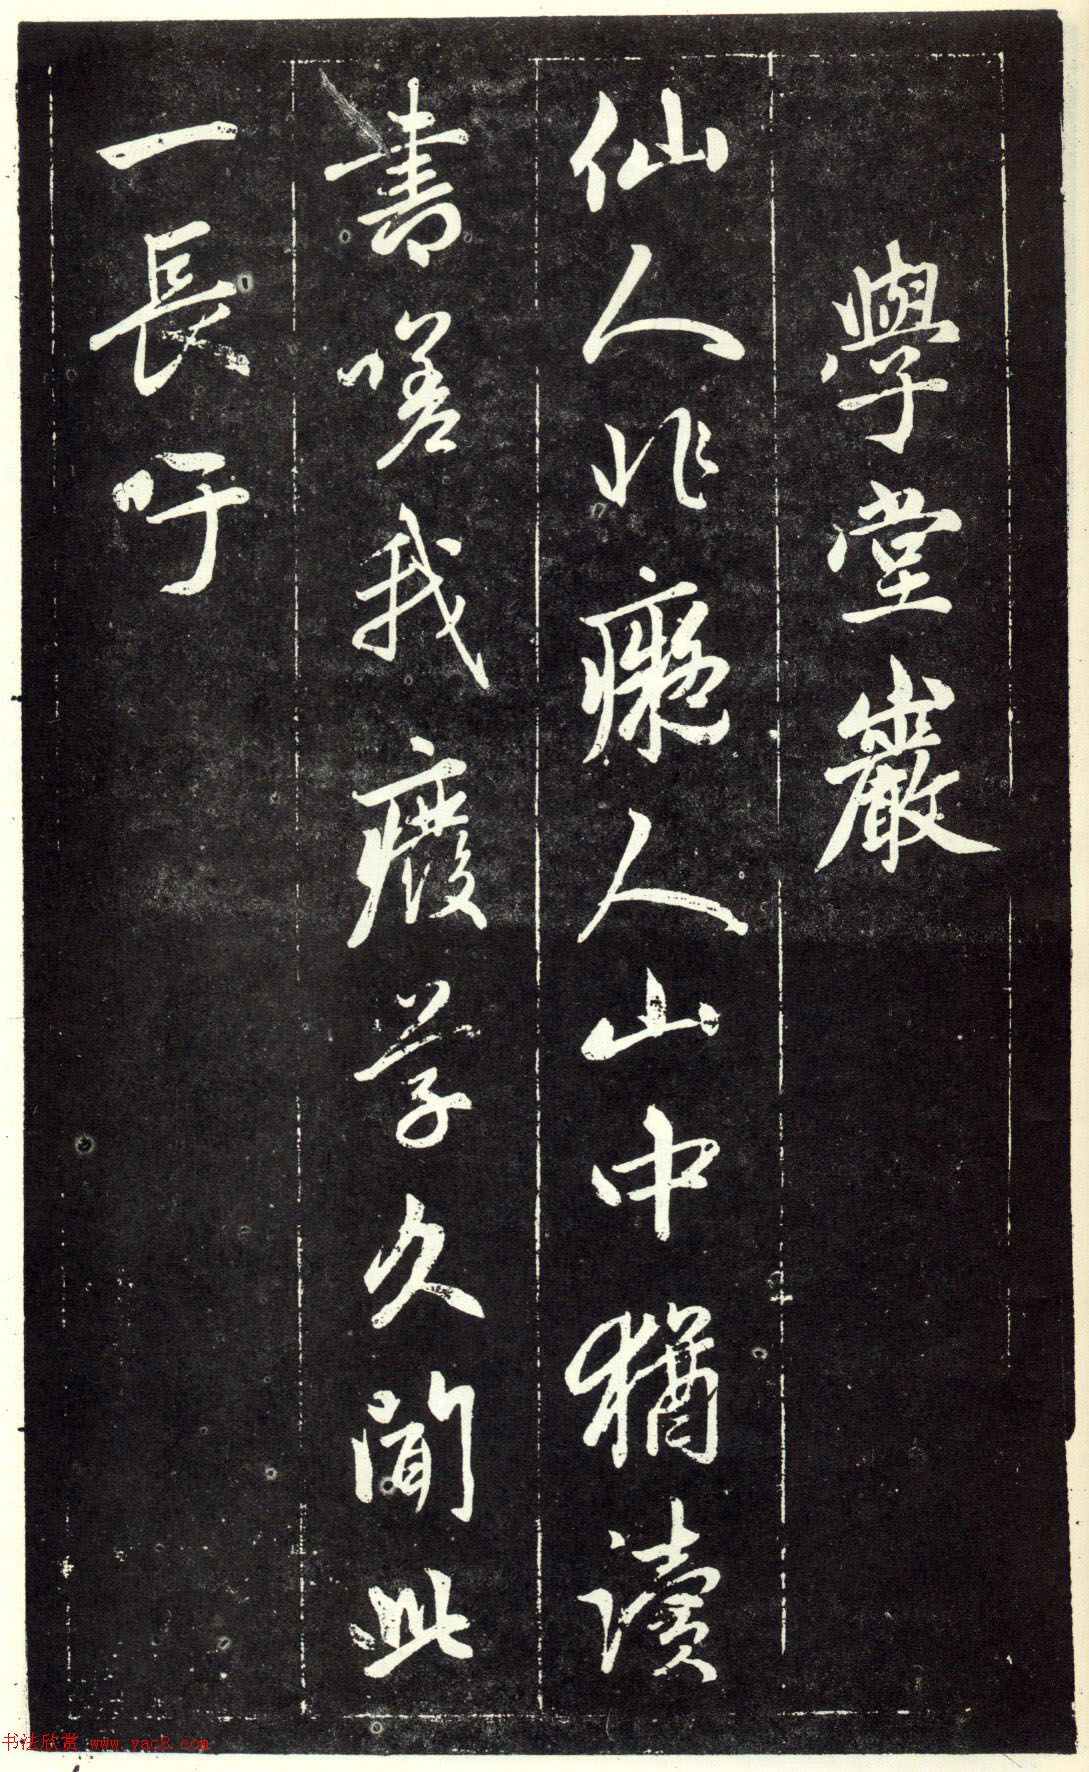 學堂巖
仙人非癡人山中猶讀
書嗟我廢学久聞此
一長吁
书法欣赏 www.yac8.com